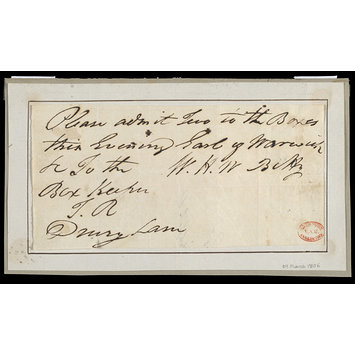 Please admit Two to the Boxes
this Evening Earl of Warwick
& To the W. H. W Betty
Box Keeper
T. R
Drury Lane